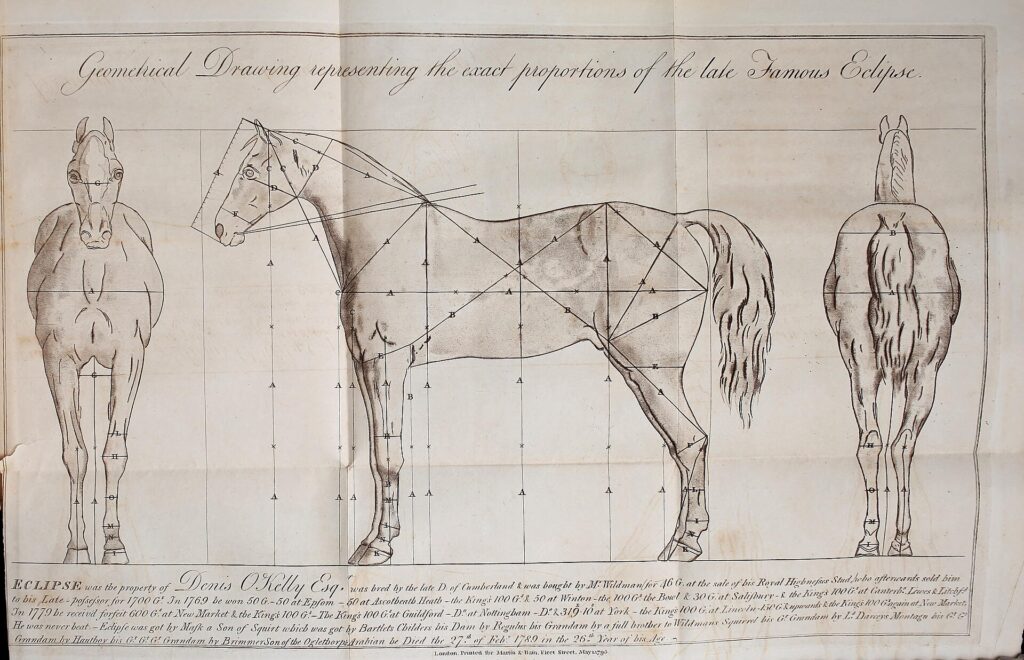 Geometrical Drawing representing the exact proportions of the late Famous Eclipse.
ECLIPSE was the property of Denis O'Kelly Esqr. was bred by the late D. of Cumberland & was bought by Mr. Wildman for 46 G. at the sale of his Royal Highness Stud, who afterwards sold him
to his Late possessor for 1700 Gs. In 1769 he won 50 G - 50 at Epsom - 50 at Ascotheath Heath - the King's 100 Gs. & 50 at Winton - the 100 Gs. the Bowl & 30 G. at Salisbury - & the King's 100 Gs. at Canterby. Lewes & Litchfd.
In 1779 he receiv'd forfeit 600 Gs. at New Market & the King's 100 Gs. - The King's 100 Gs. at Guildford - Do. at Nottingham - Do. & 319 10 at York - the King's 100 G. at Lincoln - 150 G. & upwards & the King's 100 Gs. again at New Market,
He was never beat - Eclipse was got by Mask a Son of Squirt which was got by Bartlets Childers his Dam by Regulus his Grandam by a full brother to Wildmans Squirrel his Gt. Grandam by Ld. Darceys Montagu his Gt. G.
Grandam by Hautboy his Gt. Gt. Gt. Grandam by Brimmer Son of the Oglethorpe Arabian he Died the 27th of Feby. 1789 in the 26th Year of his Age
London. Printed for Martin & Bain, Fleet Street, May 1 1796